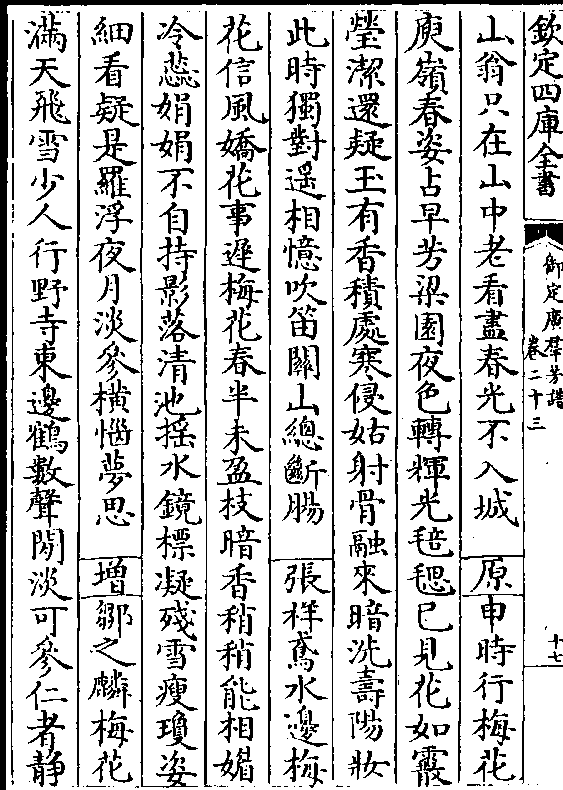 欽定四庫全書
御定廣羣芳譜
卷二十三
十七
山翁只在山中老看盡春光不入城 原 申時行梅花
庾嶺春姿占早芳梁園夜色轉輝光毰毸已見花如霰
瑩潔還疑玉有香積處寒侵姑射骨融來暗洗壽陽妝
此時獨對遥相憶吹笛關山總斷腸 張祥鳶水邊梅
花信風嬌花事遲梅花春半未盈枝暗香稍稍能相媚
冷蕊娟娟不自持影落清池揺水鏡標凝殘雪瘦瓊姿
細看疑是羅浮夜月淡參横惱夢思 增 鄒之麟梅花
滿天飛雪少人行野寺東邊鶴數聲閒淡可參仁者静